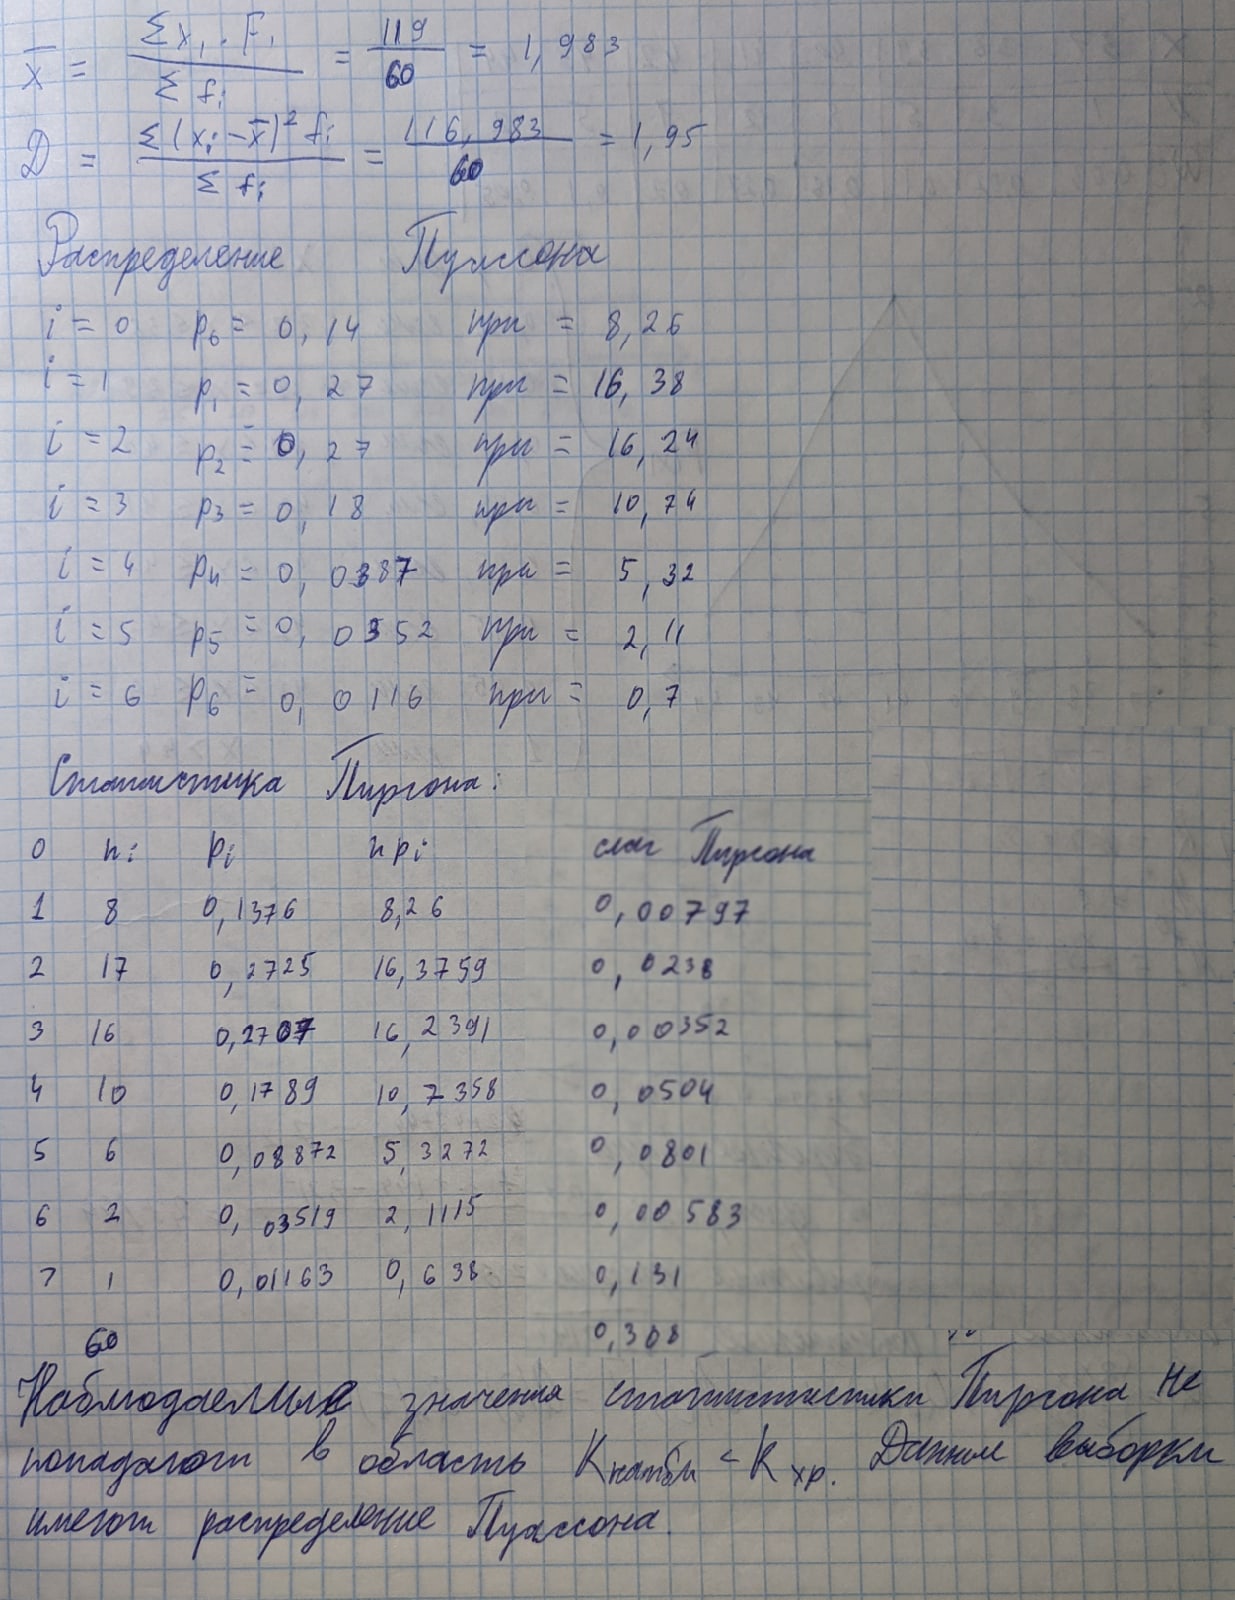 x̄ = Σ x₁ · F₁ / Σ fᵢ = 119 / 60 = 1,983
D = Σ (xᵢ - x̄)² fᵢ / Σ fᵢ = 116,983 / 60 = 1,95
Распределение Пуассона
i = 0 p₀ = 0,14 при = 8,26
i = 1 p₁ = 0,27 при = 16,38
i = 2 p₂ = 0,27 при = 16,24
i = 3 p₃ = 0,18 при = 10,74
i = 4 p₄ = 0,0887 при = 5,32
i = 5 p₅ = 0,0352 при = 2,11
i = 6 p₆ = 0,0116 при = 0,7
Статистика Пирсона:
0 nᵢ pᵢ npᵢ слаг Пирсона
1 8 0,1376 8,26 0,00797
2 17 0,2725 16,3759 0,0238
3 16 0,2707 16,2391 0,00352
4 10 0,1789 10,7358 0,0504
5 6 0,08872 5,3272 0,0801
6 2 0,03519 2,1115 0,00583
7 1 0,01163 0,638 0,131
60 0,308
Наблюдаемые значения статистистики Пирсона не
попадают в область Kнабл < Kкр. Данные выборки
имеют распределение Пуассона.